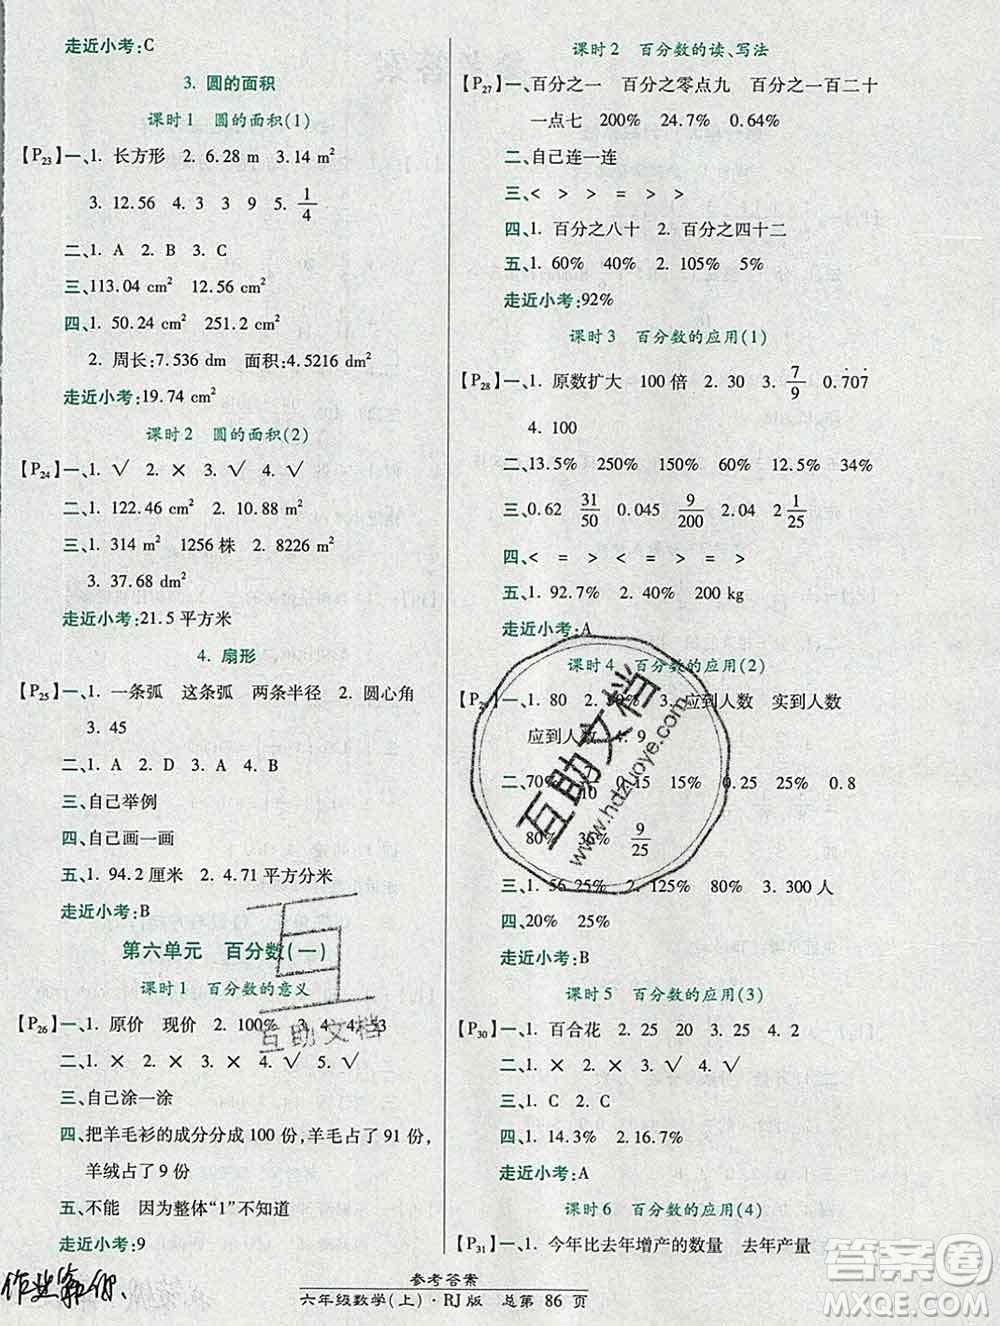 走近小考:C
3. 圆的面积
课时1 圆的面积(1)
【P23】一、1. 长方形 2. 6.28 m 3.14 m²
3. 12.56 4. 3 3 9 5. 1/4
二、1. A 2. B 3. C
三、113.04 cm² 12.56 cm²
四、1. 50.24 cm² 251.2 cm²
2. 周长:7.536 dm 面积:4.5216 dm²
走近小考:19.74 cm²
课时2 圆的面积(2)
【P24】一、1. √ 2. × 3. √ 4. √
二、1. 122.46 cm² 2. 10.88 m²
三、1. 314 m² 1256 株 2. 8226 m²
3. 37.68 dm²
走近小考:21.5 平方米
4. 扇形
【P25】一、1. 一条弧 这条弧 两条半径 2. 圆心角
3. 45
二、1. D 2. C 3. A 4. B
三、自己举例
四、自己画一画
五、1. 94.2 厘米 2. 4.71 平方分米
走近小考:B
第六单元 百分数(一)
课时1 百分数的意义
【P26】一、1. 原价 现价 2. 100% 3. 4 4. 53
二、1. × 2. × 3. × 4. √ 5. √
三、自己涂一涂
四、把羊毛衫的成分分成 100 份,羊毛占了 91 份,
羊绒占了 9 份
五、不能 因为整体“1”不知道
走近小考:9
课时2 百分数的读、写法
【P27】一、百分之一 百分之零点九 百分之一百二十
一点七 200% 24.7% 0.64%
二、自己连一连
三、< > > = > >
四、1. 百分之八十 2. 百分之四十二
五、1. 60% 40% 2. 105% 5%
走近小考:92%
课时3 百分数的应用(1)
【P28】一、1. 原数扩大 100 倍 2. 30 3. 7/9 0.7̇07̇
4. 100
二、13.5% 250% 150% 60% 12.5% 34%
三、0.62 31/50 0.045 9/200 2.04 2 1/25
四、< = > < = >
五、1. 92.7% 2. 120% 200 kg
走近小考:A
课时4 百分数的应用(2)
一、1. 80 3. 应到人数 实到人数
应到人数 4. 9
二、70% 10 15 15% 25% 0.8
80% 36% 9/25
三、1. 56.25% 2. 125% 80% 3. 300 人
四、20% 25%
走近小考:B
课时5 百分数的应用(3)
【P30】一、1. 百合花 2. 25 20 3. 25 4. 2
二、1. × 2. √ 3. √ 4. √
三、1. C 2. C
四、1. 14.3% 2. 16.7%
走近小考:A
课时6 百分数的应用(4)
【P31】一、1. 今年比去年增产的数量 去年产量
参考答案
六年级数学(上)·RJ版 总第 86 页
互助文档
www.hdzuoye.com
互助文档
答案圈
MXQE.COM